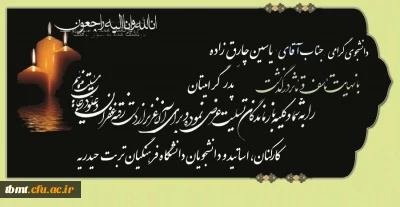 انالله و انا الیه راجعون
دانشجوی گرامی جناب آقای یاسین چارق زاده
با نهایت تاسف و تاثر درگذشت پدر گرامیتان
را به شما و کلیه بازماندگان تسلیت عرض نموده و برای آن عزیز از دست رفته غفران
کارکنان، اساتید و دانشجویان دانشگاه فرهنگیان تربت حیدریه
tbmt.cfu.ac.ir